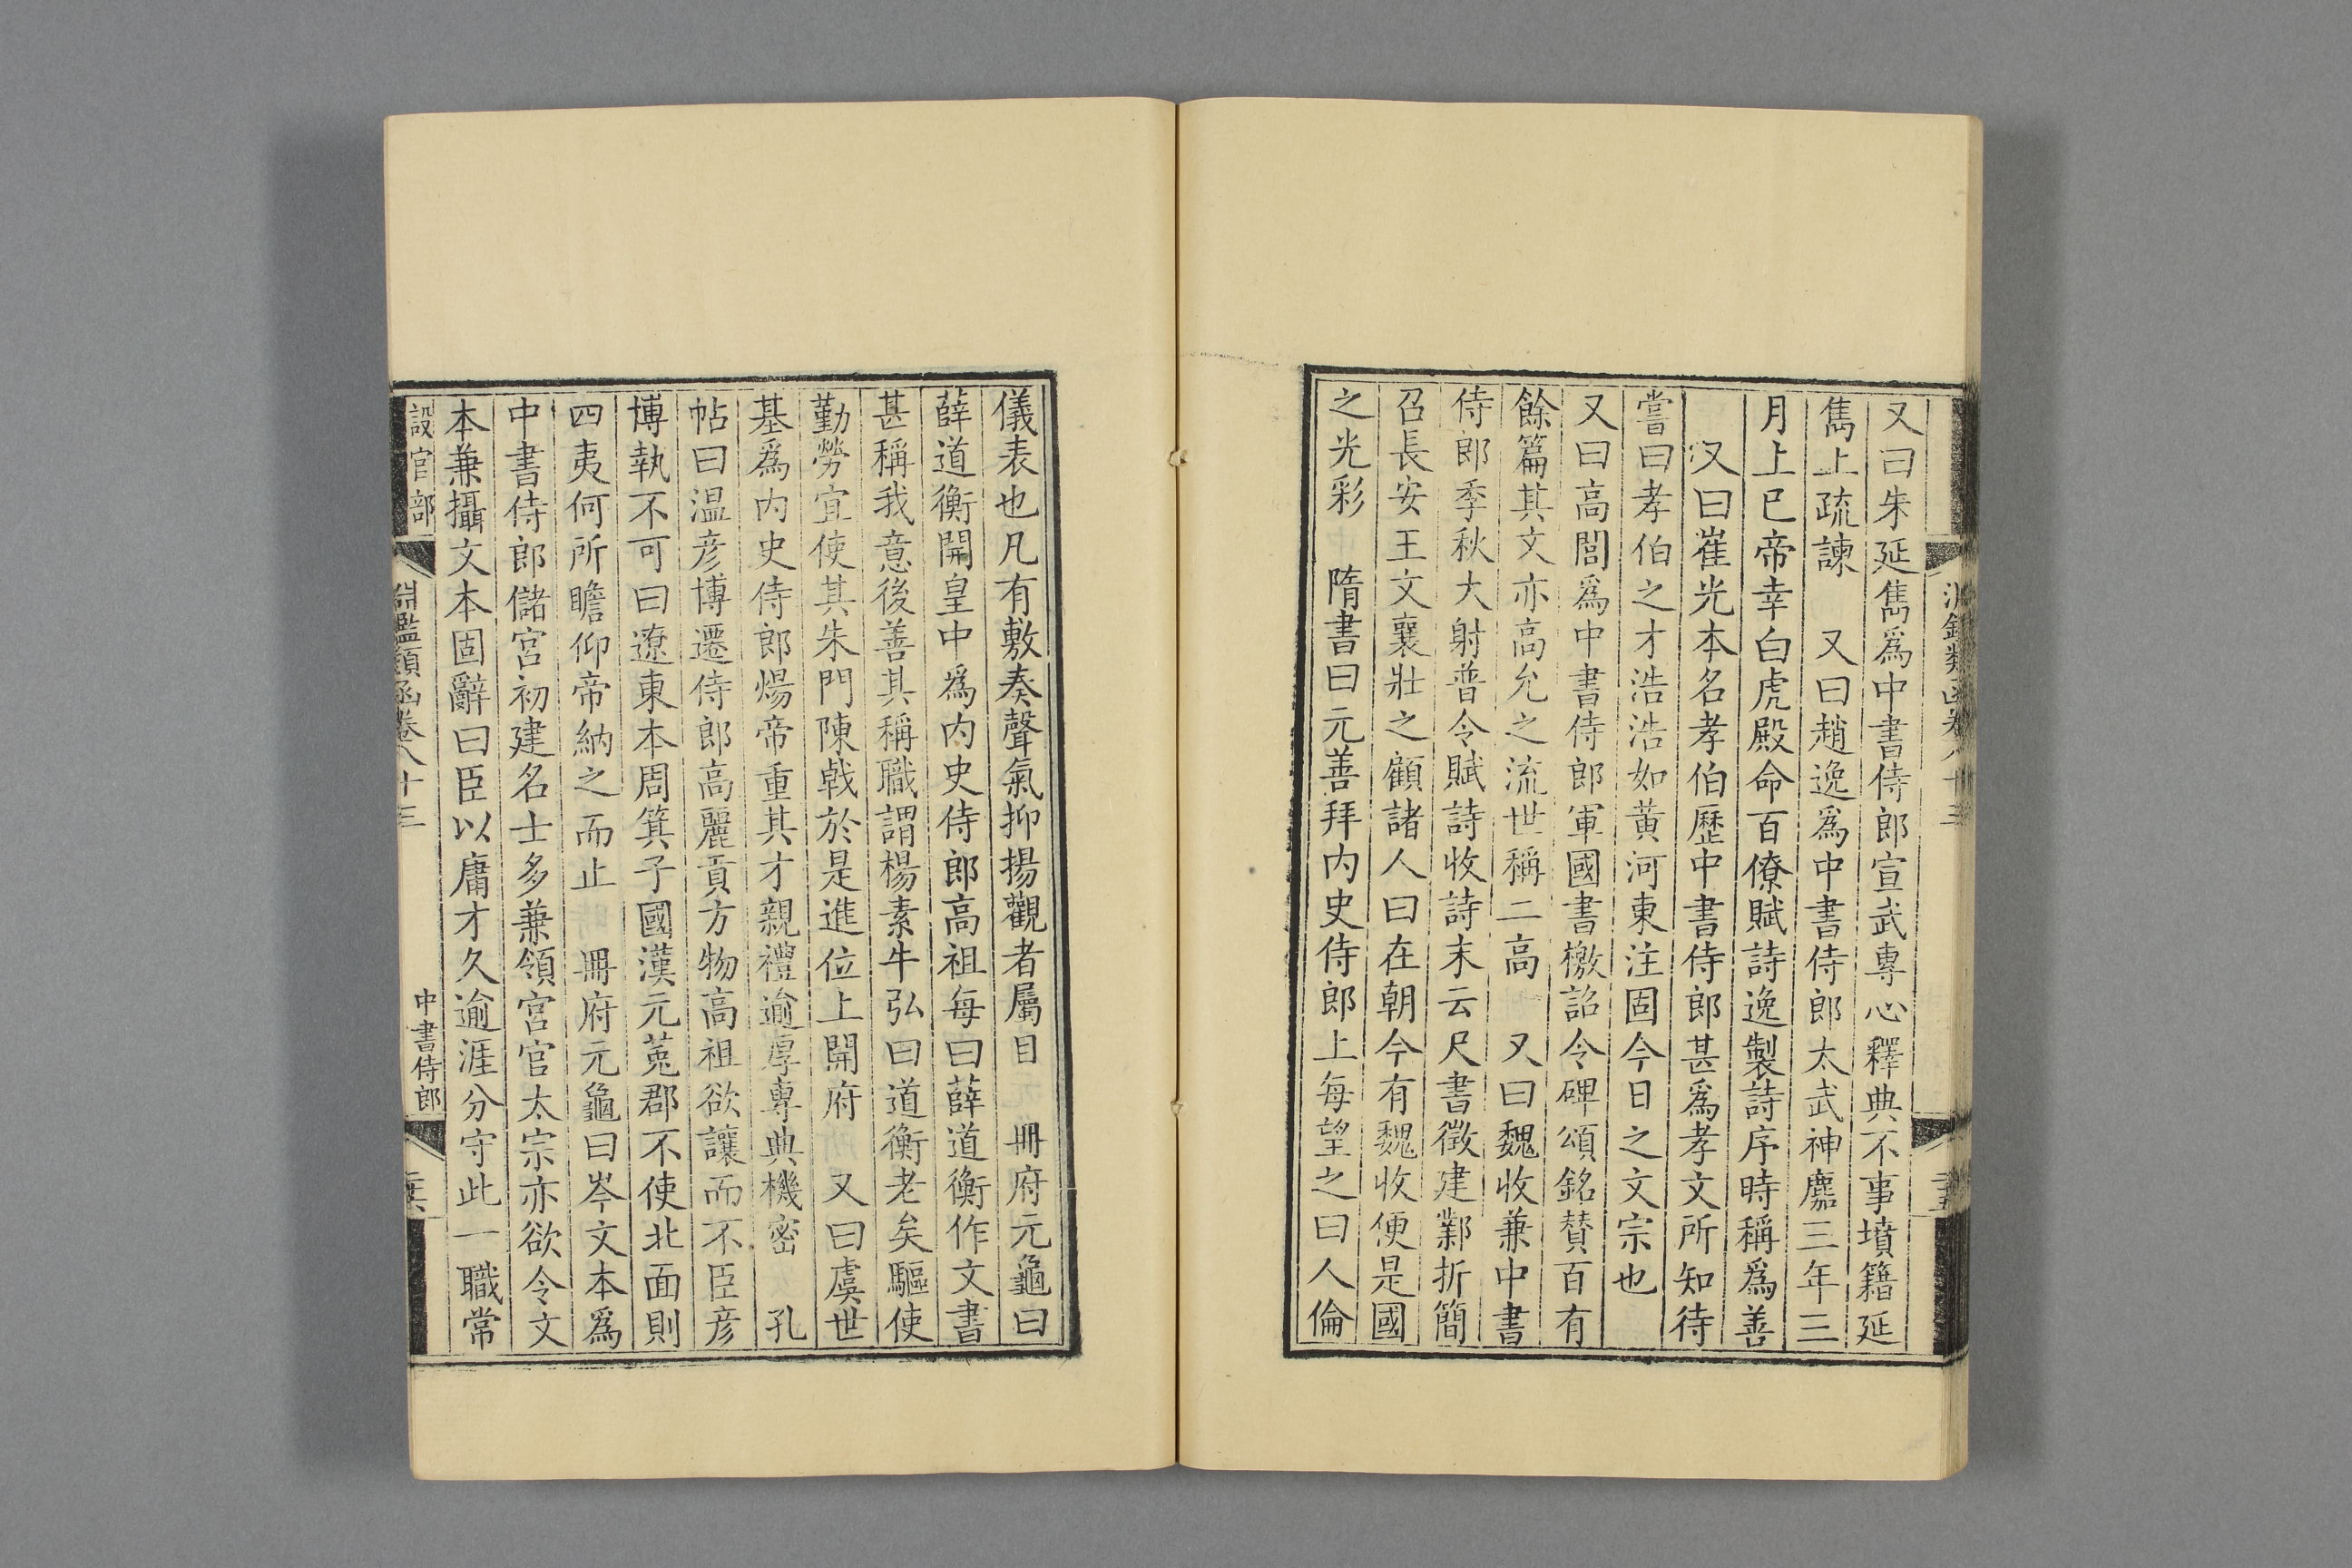 又曰朱延雋爲中書侍郎宣武專心釋典不事墳籍延
雋上疏諫　又曰趙逸爲中書侍郎太武神䴥三年三
月上巳帝幸白虎殿命百僚賦詩逸製詩序時稱爲善
又曰崔光本名孝伯歷中書侍郎甚爲孝文所知待
嘗曰孝伯之才浩浩如黃河東注固今日之文宗也
又曰高閭爲中書侍郎軍國書檄詔令碑頌銘贊百有
餘篇其文亦高允之流世稱二高　又曰魏收兼中書
侍郎季秋大射普令賦詩收詩末云尺書徵建鄴折簡
召長安王文襄壯之顧諸人曰在朝今有魏收便是國
之光彩　隋書曰元善拜内史侍郎上每望之曰人倫
儀表也凡有敷奏聲氣抑揚觀者屬目　冊府元龜曰
薛道衡開皇中爲内史侍郎高祖每曰薛道衡作文書
甚稱我意後善其稱職謂楊素牛弘曰道衡老矣驅使
勤勞宜使其朱門陳戟於是進位上開府　又曰虞世
基爲内史侍郎煬帝重其才親禮逾厚專典機密　孔
帖曰溫彦博遷侍郎高麗貢方物高祖欲讓而不臣彦
博執不可曰遼東本周箕子國漢元菟郡不使北面則
四夷何所瞻仰帝納之而止　冊府元龜曰岑文本爲
中書侍郎儲宮初建名士多兼領宮官太宗亦欲令文
本兼攝文本固辭曰臣以庸才久逾涯分守此一職常
設官部　淵鑑類函卷八十三　中書侍郎